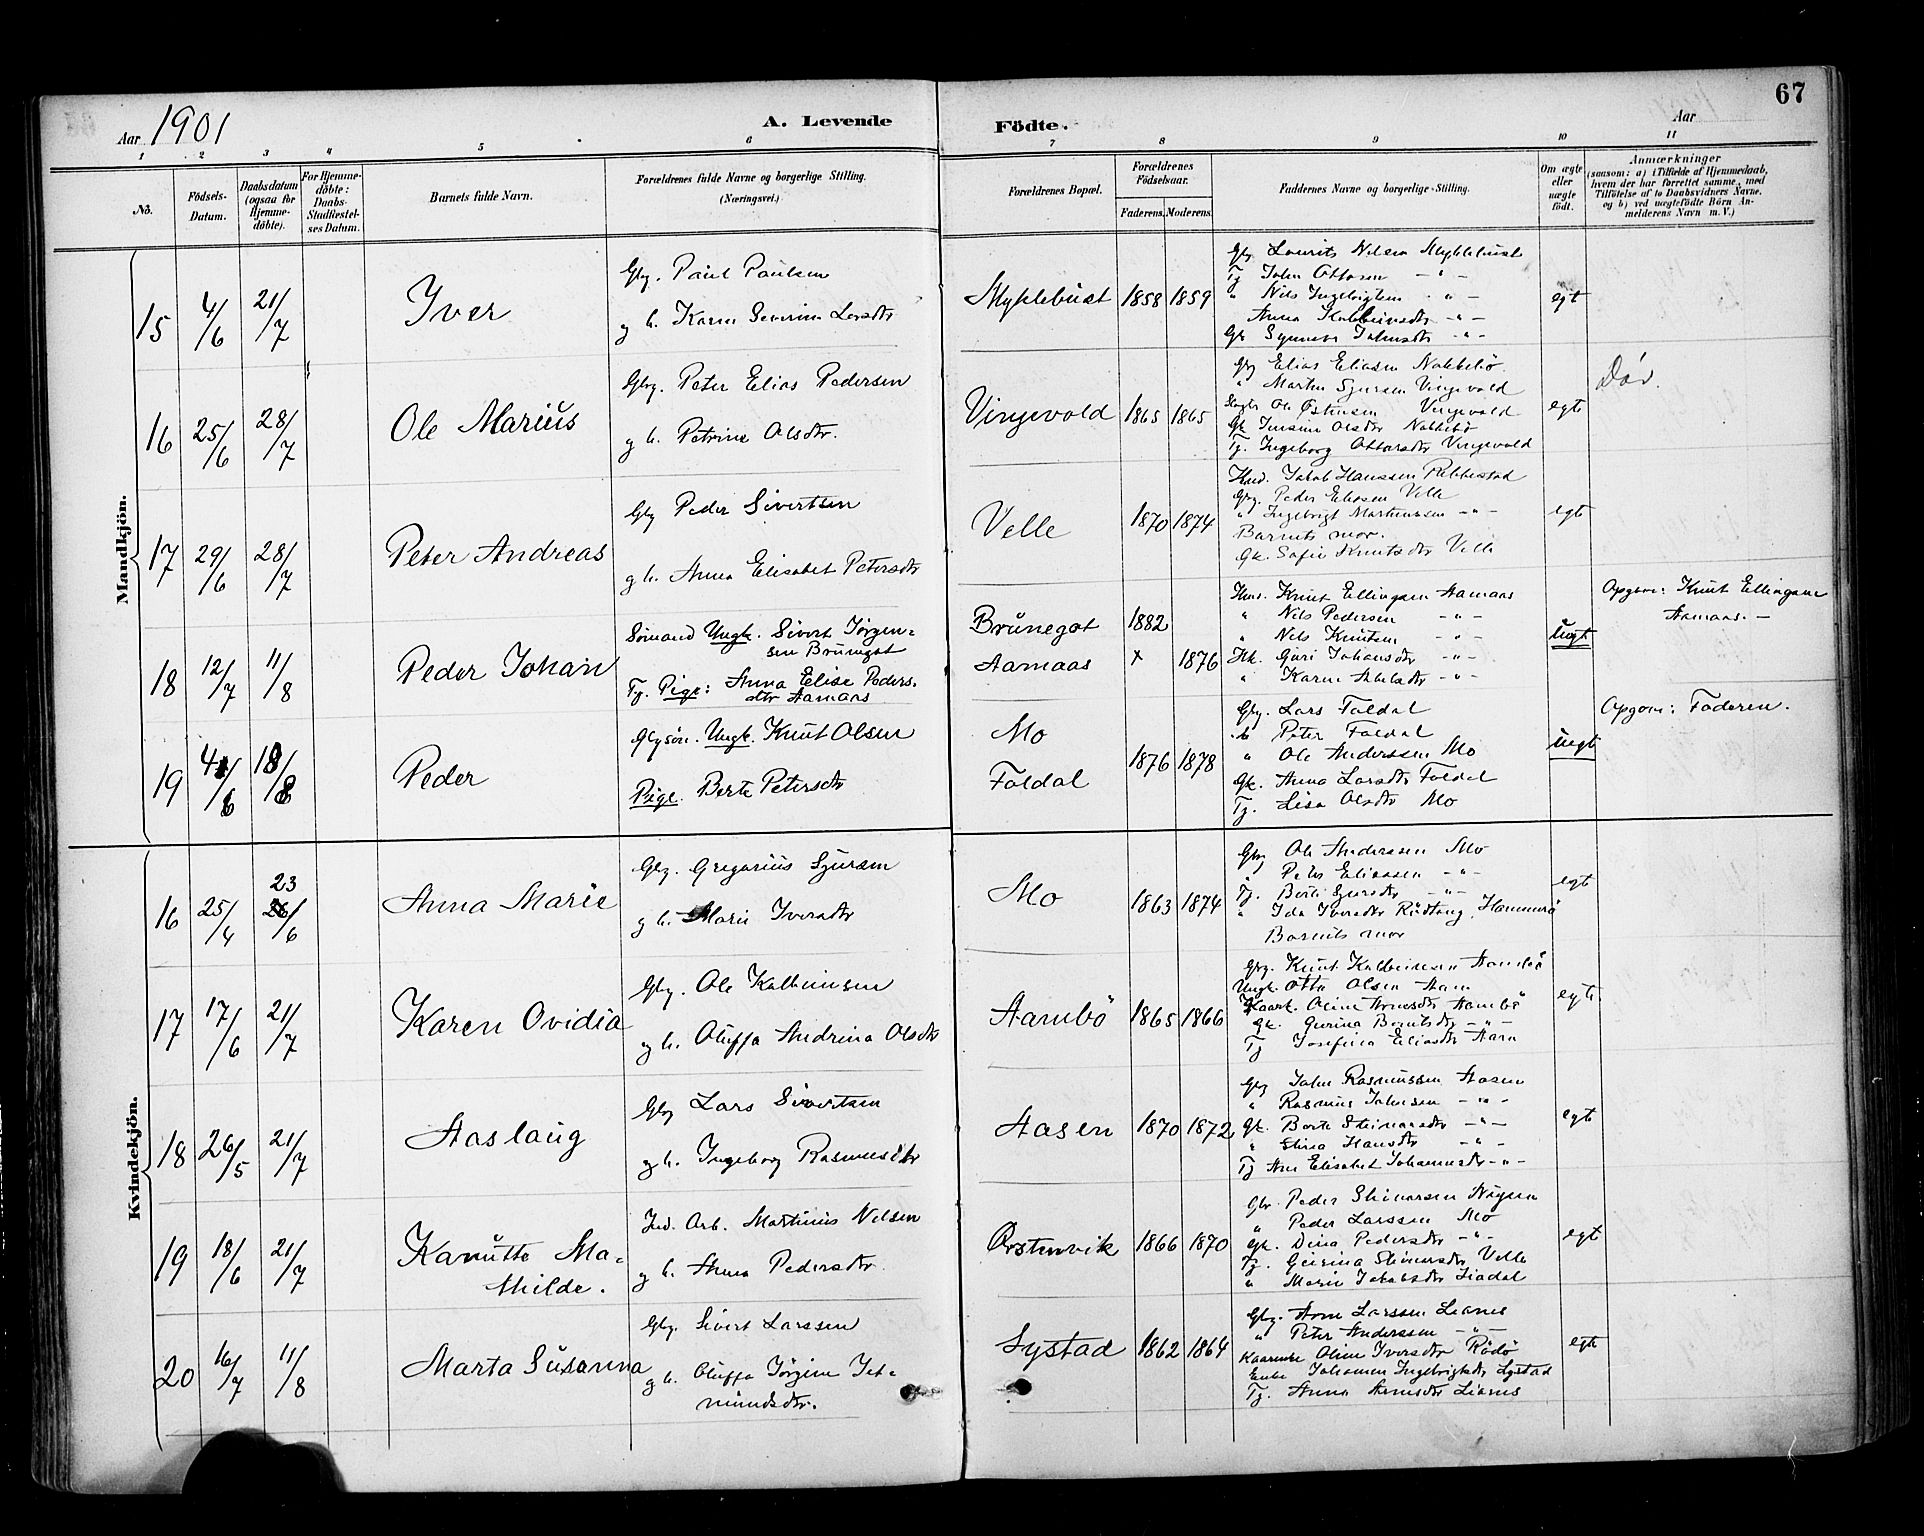 67
Aar 1901
A. Levende
Födte.
Aar
1 2 3 4 5 6 7 8 9 10 11
No.
Födsels-
Datum.
Daabsdatum
(ogsaa for
Hjemme-
döbte).
For Hjemme-
döbte:
Daabs-
Stadfæstel-
ses Datum.
Barnets fulde Navn.
Forældrenes fulde Navne og borgerlige Stilling.
(Næringsvei.)
Forældrenes Bopæl.
Forældrenes
Födselsaar.
Faderens. Moderens.
Faddernes Navne og borgerlige Stilling.
Om ægte
eller
uægte
födt.
Anmærkninger
(saasom: a) i Tilfælde af Hjemmedaab,
hvem der har forrettet samme, med
Tilföielse af to Daabsvidners Navne.
og b) ved uægtefödte Börn An-
melderens Navn m. V.)
Mandkjön.
15 4/6 21/7 Iver
Gbr. Paul Paulsen
g h. Karen Severine Larsdtr
Myklebust 1858 1859
Gbr. Laurits Nilsen Myklebust
Tj John Ottosen - " -
" Nils Ingebrigtsen - " -
Anna - " -
Gk Synneve Johnsdtr - " -
egt
16 25/6 28/7 Ole Marius
Gbr. Peter Elias Pedersen
g h. Petrine Olsdtr.
Vingevold 1865 1865
Gbr Elias Eliasen Nakkebö
" Martin Sjursen Vingevold
Ole Østensen Vingevold
Gk Jensine Olsdtr Nakkebö
Tj. Ingeborg Ottarsdtr Vingevold
egt
Döv.
17 29/6 28/7 Peter Andreas
Gbr Peder Sivertsen
g h. Anna Elisabet Petersdtr
Velle 1870 1874
Jakob Hanssen
Gbr. Peder Eliasen Velle
" Ingebrigt Martinussen - " -
Barnets mor.
Gk. Sofie Knutsdtr Velle
egt
18 12/7 11/8 Peder Johan
Sömand Ungk. Sivert Jörgen=
sen Brunegot
Tj. Pige: Anna Elise Peders-
dtr Aamaas
Brunegot 1882
Aamaas x 1876
Knut Ellingsen Aamaas
" Nils Pedersen - " -
" Nils Knutsen - " -
Guri Johansdtr - " -
" Karen - " -
uegt
Opgave: Knut Ellingsen
Aamaas. -
19 Peder
Gbrsön. Ungk. Knut Olsen
Pige. Berte Petersdtr
Mo
Foldal 1876 1878
Gbr. Lars Foldal
" Peter Foldal
" Ole Anderssen Mo
Gk. Anna Larsdtr Foldal
Tj. Lisa Olsdtr Mo
uegt
Opgave: Faderen.
Kvindekjön.
16 25/4 23/6 Anna Marie
Gbr. Gregorius Sjursen
g h. Marie Iversdtr
Mo 1863 1874
Gbr Ole Anderssen Mo
" Peter Eliassen - " -
Tj. Berte Sjursdtr - " -
" Ida Iversdtr
Barnets mor
egt
17 17/6 21/7 Karen Ovidia
Gbr. Ole Kolbeinsen
g h. Oluffa Andrina Olsdtr
Aambö 1865 1866
Gbr. Knut Kolbeinsen Aambö
Ungk. Otto Olsen Aam
Oline Arnesdtr Aambö
Gk. Gurina - " -
Tj Josefine Eliasdtr Aam
egte.
18 26/5 21/7 Aaslaug
Gbr Lars Sivertsen
g h. Ingeborg Rasmusdtr
Aasen 1870 1872
Gbr John Rasmussen Aasen
" Rasmus Johnsen - " -
Gk. Berte Steinarsdtr - " -
" Stina Hansdtr - " -
Tj Ane Elisabet Johannesdtr - " -
egt
19 18/6 21/7 Kanutte Ma=
thilde.
Ind. Arb. Martinus Nilsen
g h. Anna Pedersdtr
Ørstenvik 1866 1870
Gbr. Peder Steinarsen
" Peder Larssen Mo
Gk. Dina Pedersdtr - " -
Tj. Steinarsdtr Velle
" Marie Jakobsdtr Liadal
egt
20 16/7 11/8 Marta Susanna
Gbr. Sivert Larssen
g h. Oluffa Jörgine Jet=
mundsdtr.
Systad 1862 1864
Gbr. Arne Larssen Lianes
" Peter Anderssen - " -
Oline Iversdtr
Enke Ingebrigtsdtr Systad
Tj. Anna Arnesdtr Lianes
egte